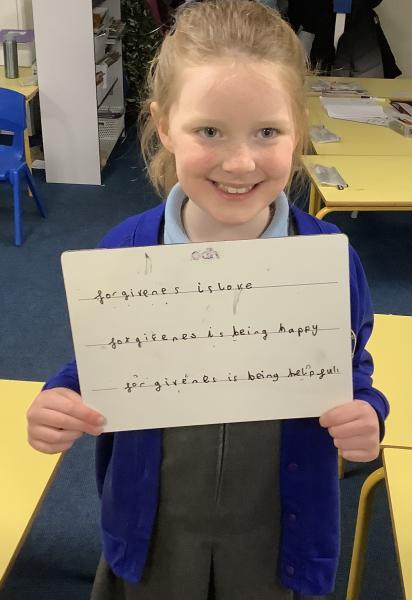 forgivenes is love
forgivenes is being happy
for givenes is being helpful